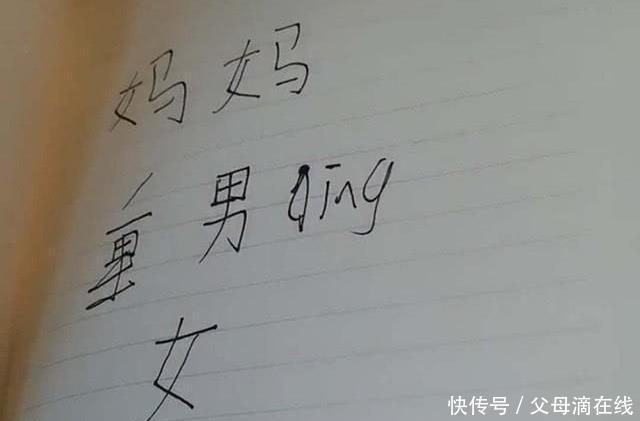 妈妈
重男qing
女
快传号/父母滴在线